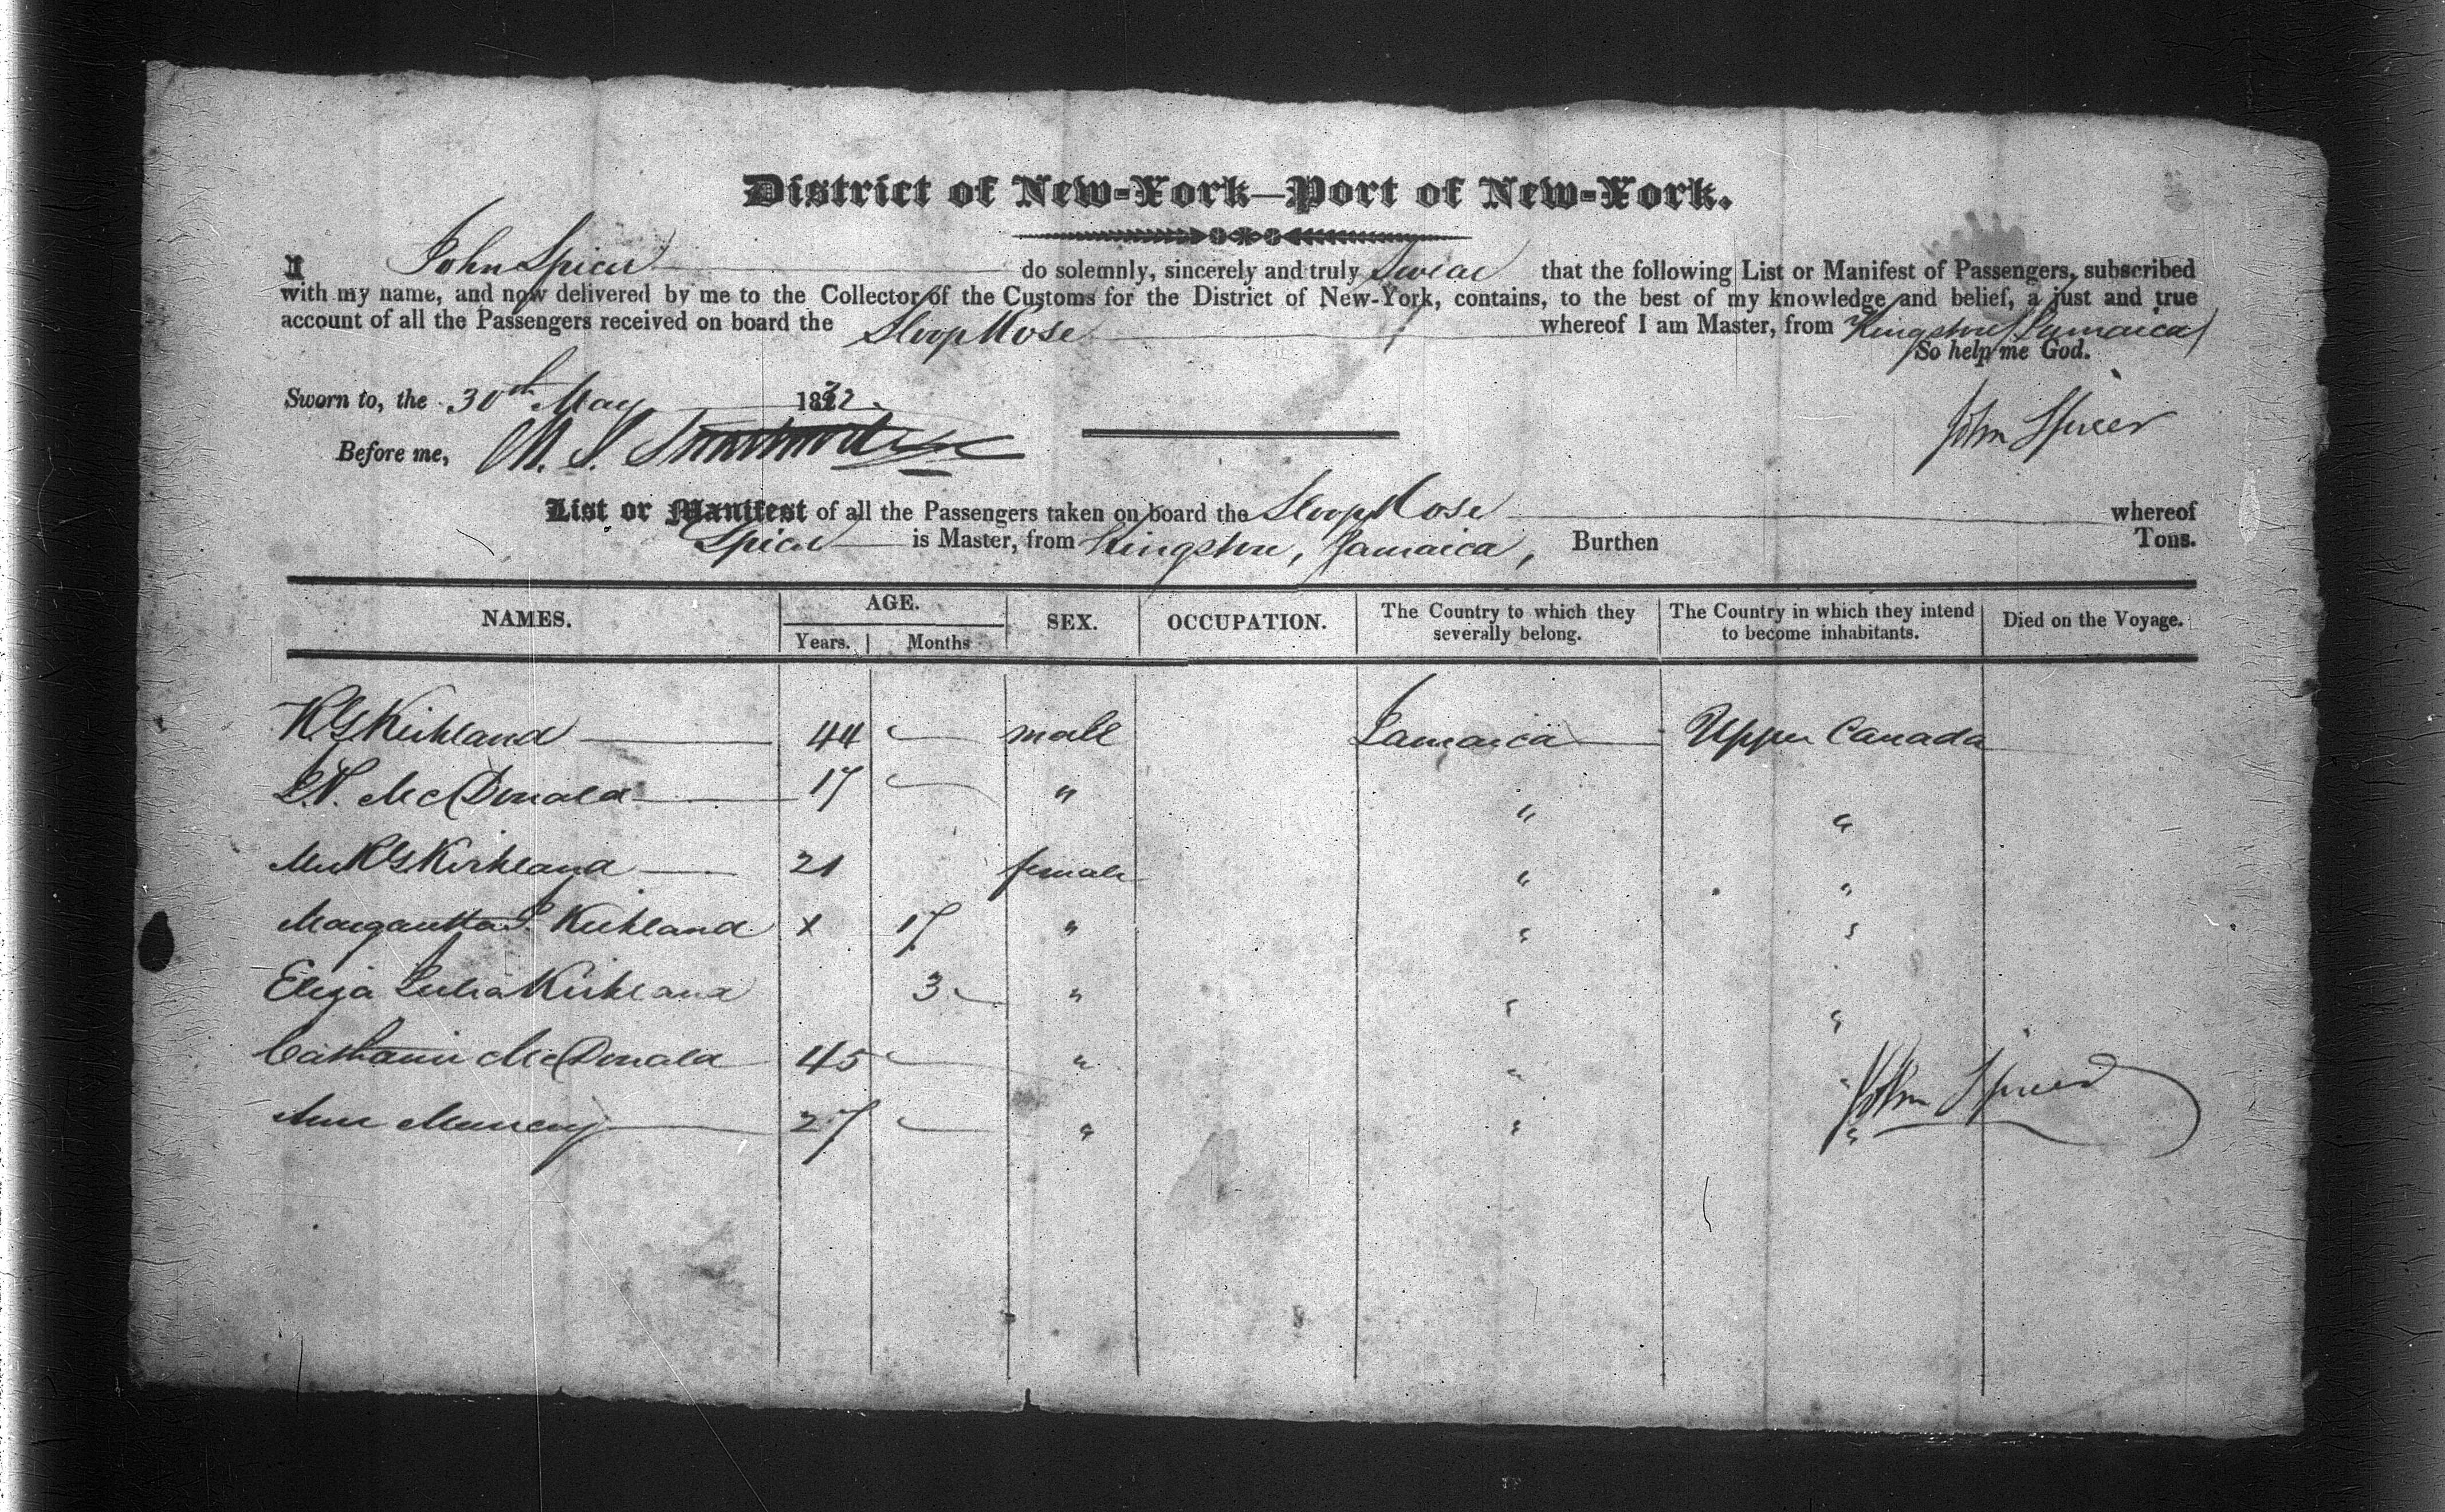 District of New-York—Port of New-York.
I John Spicer do solemnly, sincerely and truly Swear that the following List or Manifest of Passengers, subscribed
with my name, and now delivered by me to the Collector of the Customs for the District of New-York, contains, to the best of my knowledge and belief, a just and true
account of all the Passengers received on board the Sloop Rose whereof I am Master, from Kingston (Jamaica)
So help me God.
Sworn to, the 30th May 1832
John Spicer
Before me,
List or Manifest of all the Passengers taken on board the Sloop Rose whereof
Spicer is Master, from Kingston, Jamaica, Burthen Tons.
NAMES. AGE. SEX. OCCUPATION. The Country to which they severally belong. The Country in which they intend to become inhabitants. Died on the Voyage.
Years. Months
R G Kirkland 44 male Jamaica Upper Canada
McDonald 17 " " "
Mrs R G Kirkland 21 female " "
Margaretta S. Kirkland x 17 " " "
Eliza Julia Kirkland 3 " " "
Catharine McDonald 45 " " "
Ann 27 " " "
John Spicer